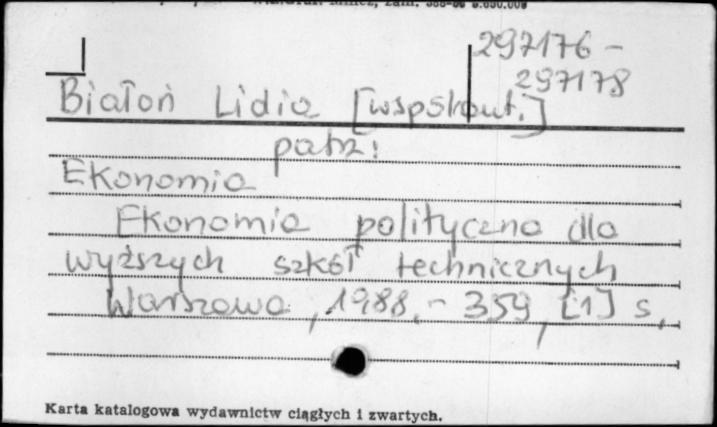 zam. 388-86 5.650.000
297176 -
297178
Białoń Lidia [współaut.]
patrz:
Ekonomia
Ekonomia polityczna dla
wyższych szkół technicznych
Warszawa, 1988. - 359, [1] s.
Karta katalogowa wydawnictw ciągłych i zwartych.